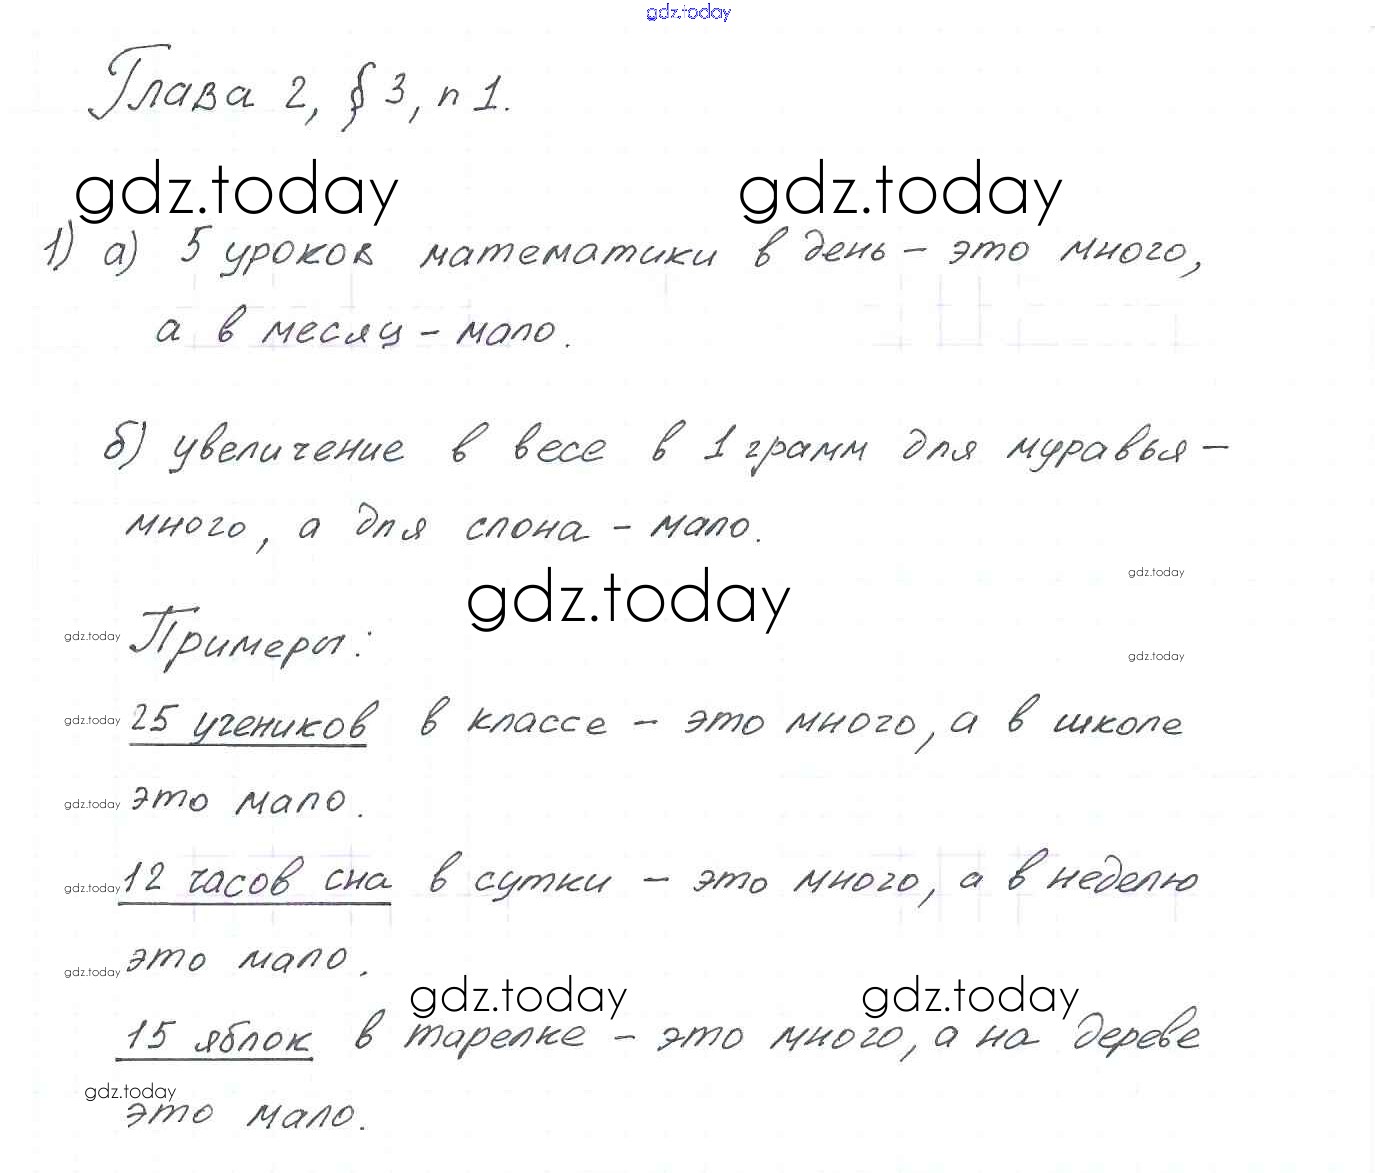 gdz.today
Глава 2, § 3, п 1.
gdz.today gdz.today
1) а) 5 уроков математики в день – это много,
а в месяц – мало.
б) увеличение в весе в 1 грамм для муравья –
много, а для слона – мало.
gdz.today
gdz.today
gdz.today Примеры:
gdz.today
gdz.today 25 учеников в классе – это много, а в школе
gdz.today это мало.
gdz.today 12 часов сна в сутки – это много, а в неделю
gdz.today это мало.
gdz.today gdz.today
15 яблок в тарелке – это много, а на дереве
gdz.today
это мало.